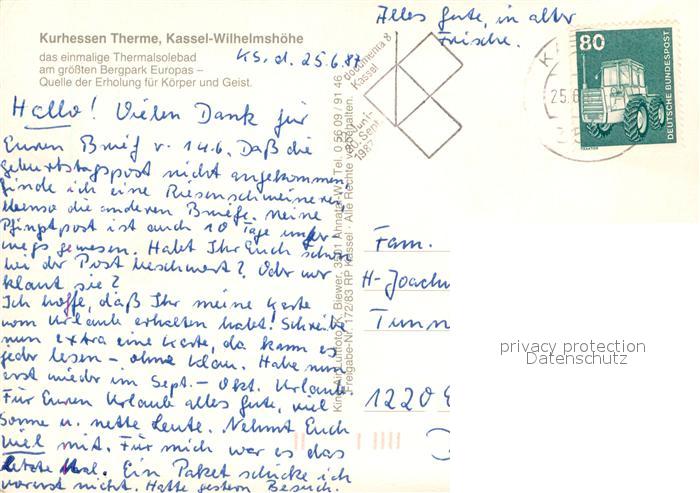 Alles Gute, in alter
Frische.
Kurhessen Therme, Kassel-Wilhelmshöhe
das einmalige Thermalsolebad
am größten Bergpark Europas –
Quelle der Erholung für Körper und Geist.
KS. d. 25.6.87
Hallo! Vielen Dank für
Euren Brief v. 14.6. Daß die
Geburtstagspost nicht angekommen,
finde ich eine Riesenschweinerei,
ebenso die anderen Briefe. Meine
Pfingstpost ist auch 10 Tage unter-
wegs gewesen. Habt Ihr Euch schon
bei der Post beschwert? Oder wer
klaut sie?
Ich hoffe, daß Ihr meine Karte
vom Urlaub erhalten habt! Schreibe
nun extra eine Karte, da kann es
jeder lesen – ohne Klau. Habe nun
erst wieder im Sept. – Okt. Urlaub.
Für Euren Urlaub alles gute, viel
Sonne u. nette Leute. Nehmt Euch
viel mit. Für mich war es das
letzte Mal. Ein Paket schicke ich
vorerst nicht. Hatte gestern Besuch.
Luftfoto K. Biewer, 3501 Ahnatal-W., Tel. 0 56 09 / 91 46
Freigabe-Nr. 172/83 RP Kassel - Alle Rechte vorbehalten.
documenta 8
Kassel
Sept.
1987
25.6
80
DEUTSCHE BUNDESPOST
TRAKTOR
Fam.
H-Joach
Tunn
1220
privacy protection
Datenschutz